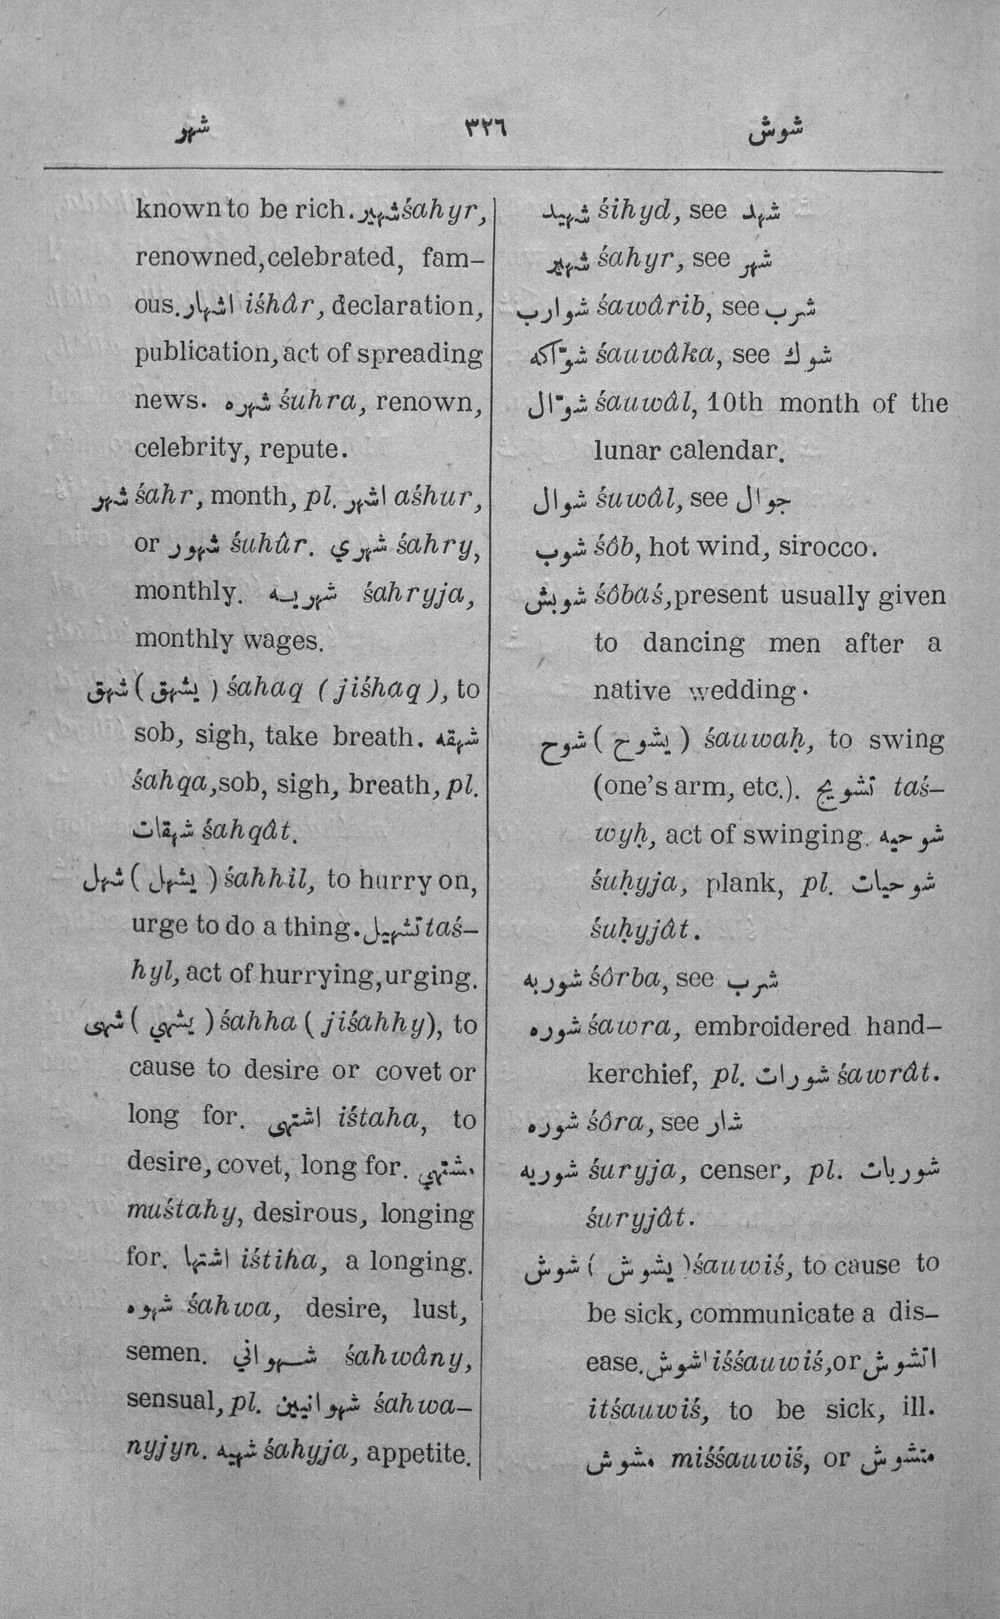 شهر ٣٢٦ شوش
known to be rich. شهير śahyr,
renowned, celebrated, fam-
ous. اشهار iśhâr, declaration,
publication, act of spreading
news. شهره śuhra, renown,
celebrity, repute.
شهر śahr, month, pl. اشهر aśhur,
or شهور śuhûr. شهري śahry,
monthly. شهريه śahryja,
monthly wages.
شهق ( يشهق ) śahaq ( jiśhaq ), to
sob, sigh, take breath. شهقه
śahqa, sob, sigh, breath, pl.
شهقات śahqât.
شهل ( يشهل ) śahhil, to hurry on,
urge to do a thing. تشهيل taś-
hyl, act of hurrying, urging.
شهى ( يشهي ) śahha ( jiśahhy), to
cause to desire or covet or
long for. اشتهى iśtaha, to
desire, covet, long for. مشتهي
muśtahy, desirous, longing
for. اشتها iśtiha, a longing.
شهوه śahwa, desire, lust,
semen. شهواني śahwâny,
sensual, pl. شهوانيين śahwa-
nyjyn. شهيه śahyja, appetite.
شهيد śihyd, see شهد
شهير śahyr, see شهر
شوارب śawârib, see شرب
شوّاكه śauwâka, see شوك
شوّال śauwâl, 10th month of the
lunar calendar.
شوال śuwâl, see جوال
شوب śôb, hot wind, sirocco.
شوبش śôbaś, present usually given
to dancing men after a
native wedding.
شوح ( يشوح ) śauwaḥ, to swing
(one's arm, etc.). تشويح taś-
wyḥ, act of swinging. شوحيه
śuḥyja, plank, pl. شوحيات
śuḥyjât.
شوربه śôrba, see شرب
شوره śawra, embroidered hand-
kerchief, pl. شورات śawrât.
شوره śôra, see شار
شوريه śuryja, censer, pl. شوريات
śuryjât.
شوش ( يشوش ) śauwiś, to cause to
be sick, communicate a dis-
ease. اشوش iśśauwiś, or اتشوش
itśauwiś, to be sick, ill.
مشوش miśśauwiś, or متشوش